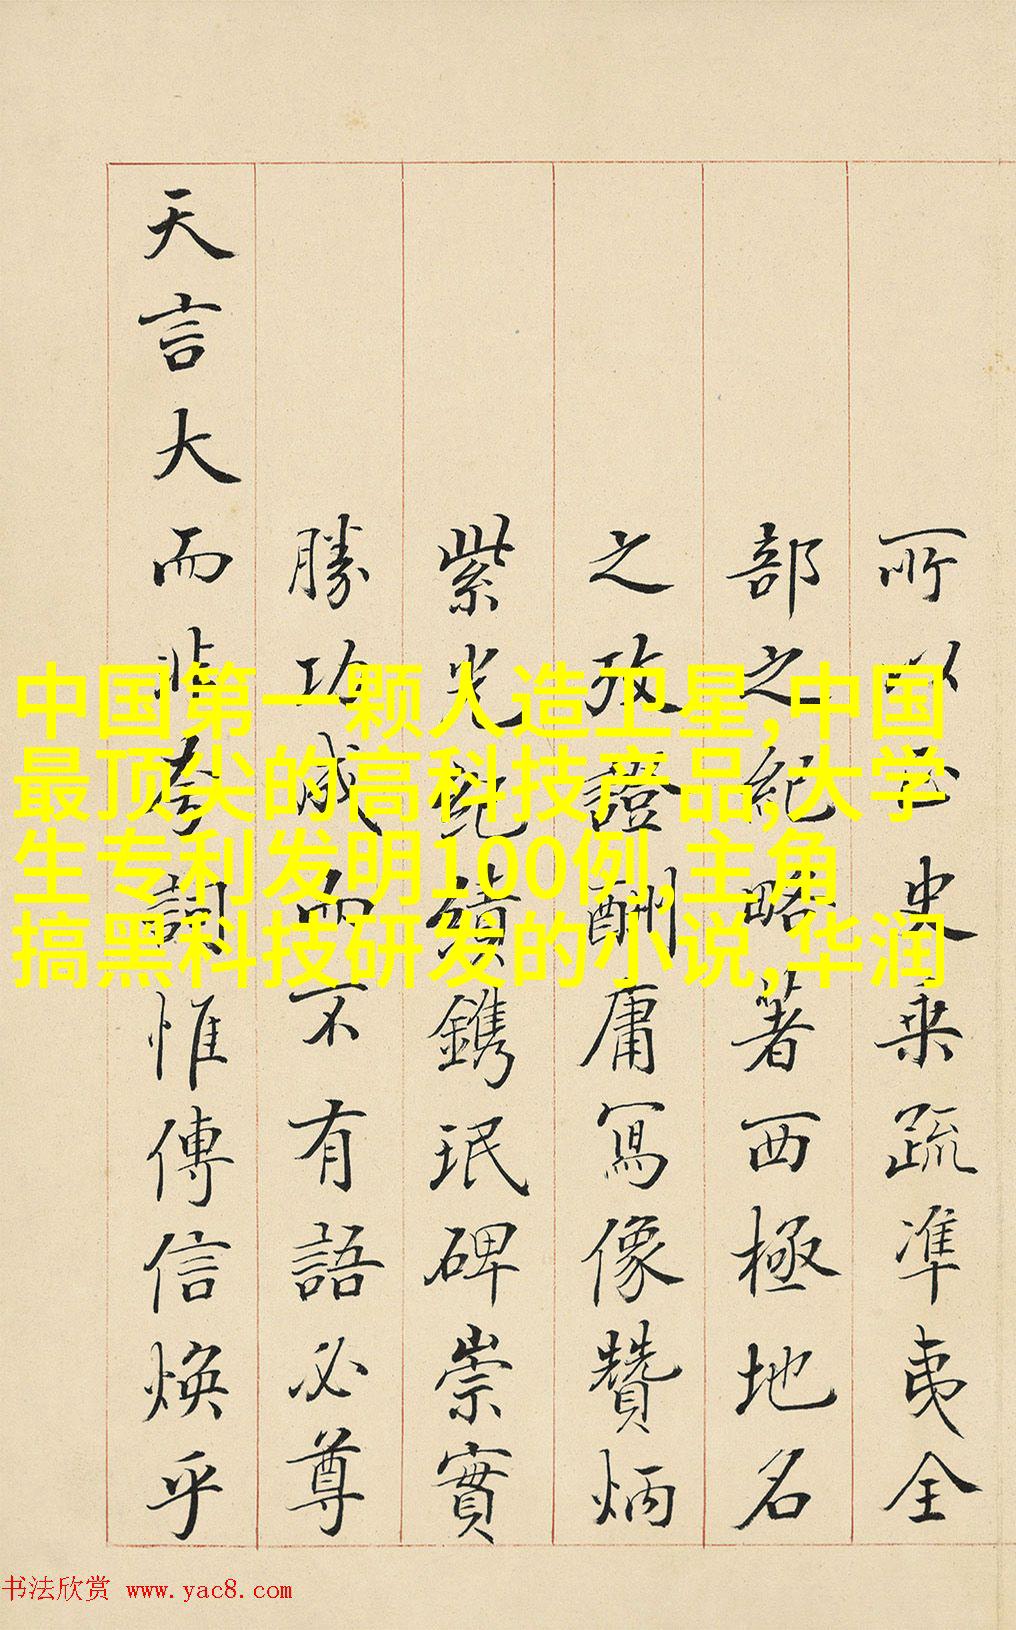 所以正史乘疏準夷全
部之紀略著西極地名
之攷證酬庸寫像贊炳
紫光紀績鐫珉碑崇實
勝功成而不有語必尊
天言大而非夸詞惟傳信煥乎
中国第一颗人造卫星,中国
最顶尖的高科技产品,大学
生专利发明100例,主角
搞黑科技研发的小说,华润
书法欣赏 www.yac8.com